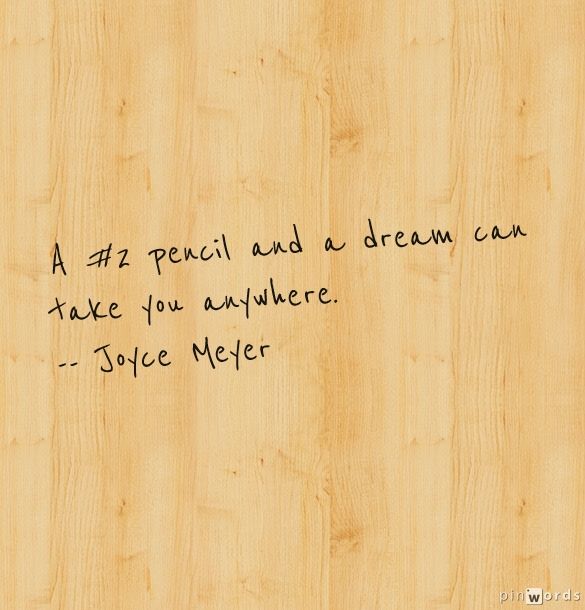 A #2 pencil and a dream can
take you anywhere.
-- Joyce Meyer
pinwords